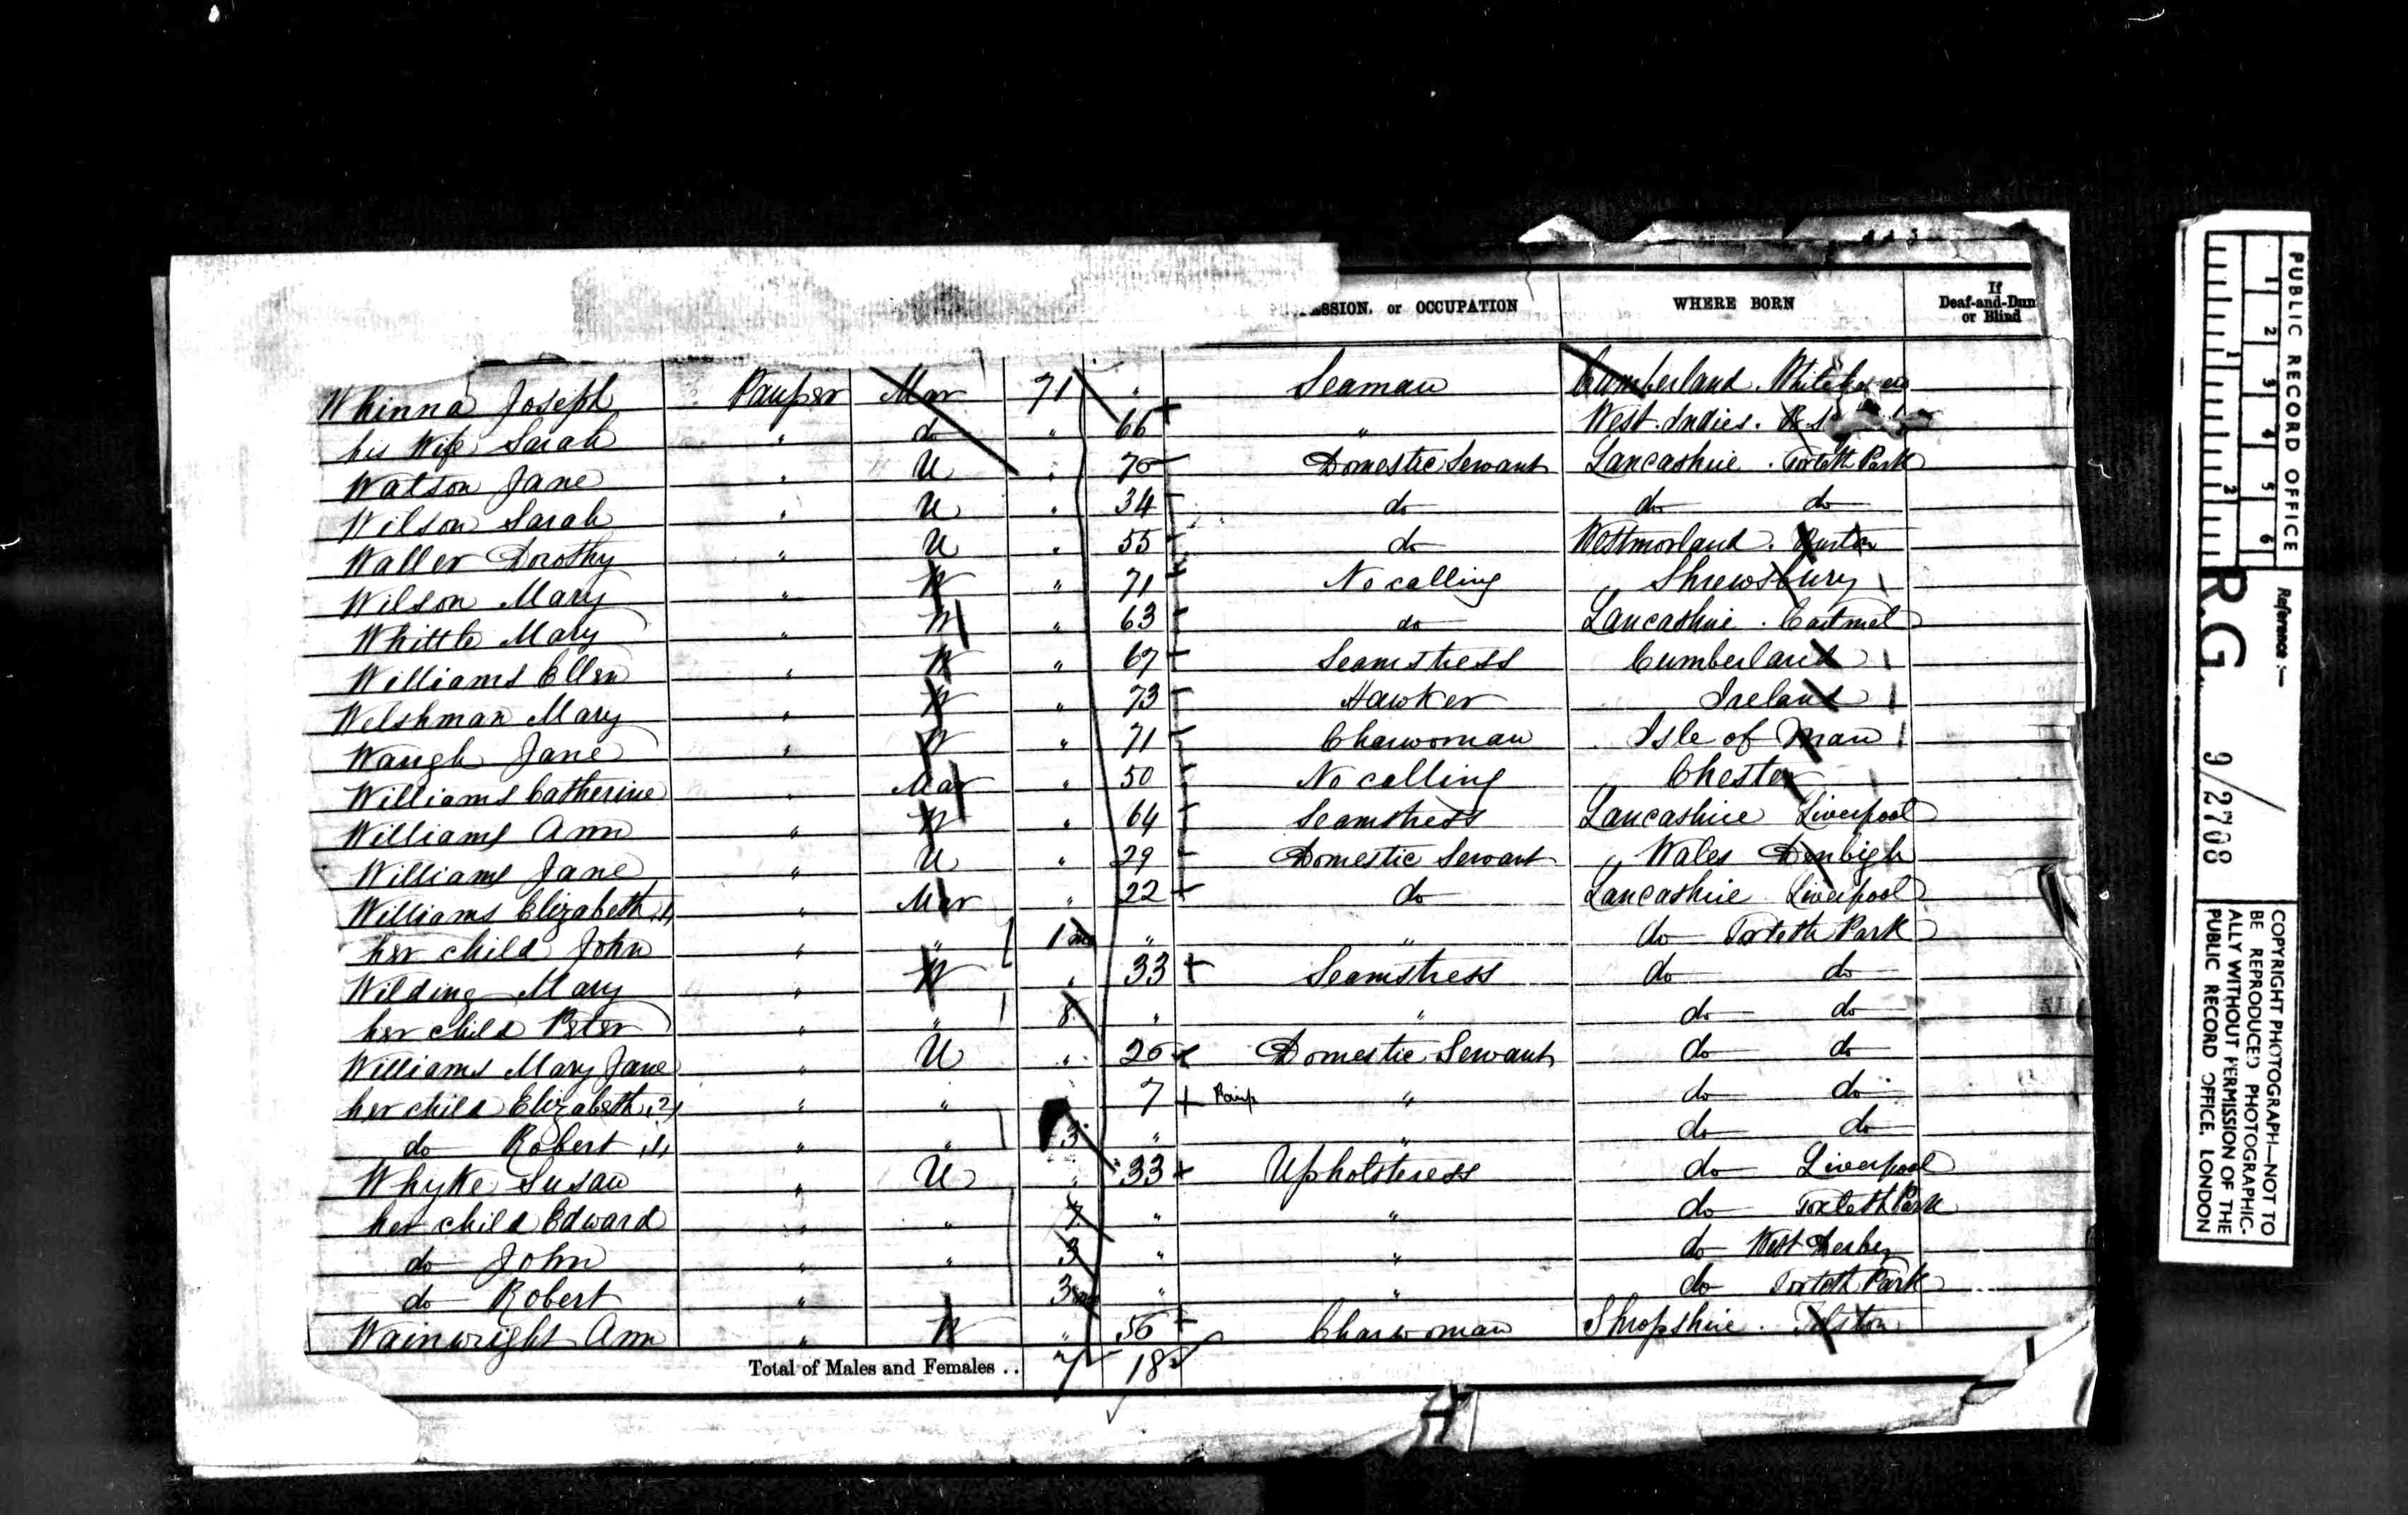 SSION, or OCCUPATION WHERE BORN If Deaf-and-Dum or Blind
Whinna Joseph Pauper Mar 71 " Seaman Cumberland. Whitehaven
his Wife Sarah " do " 66 " West Indies.
Watson Jane " U " 70 Domestic Servant Lancashire. Toxteth Park
Wilson Sarah " U " 34 do do do
Waller Dorothy " U " 55 do Westmorland. Burton
Wilson Mary " W " 71 No calling Shrewsbury
Whittle Mary " W " 63 do Lancashire. Cartmel
Williams Ellen " W " 67 Seamstress Cumberland
Welshman Mary " W " 73 Hawker Ireland
Waugh Jane " W " 71 Charwoman Isle of Man
Williams Catherine " Mar " 50 No calling Chester
Williams Ann " W " 64 Seamstress Lancashire Liverpool
Williams Jane " U " 29 Domestic Servant Wales Denbigh
Williams Elizabeth (1) " Mar " 22 do Lancashire Liverpool
her child John " " 1 mo " " do Toxteth Park
Wilding Mary " W " 33 Seamstress do do
her child Peter " " 8 " " do do
Williams Mary Jane " U " 26 Domestic Servant do do
her child Elizabeth (2) " " 7 " do do
do Robert (1) " " 3 " " do do
Whyke Susan " U " 33 Upholstress do Liverpool
her child Edward " " 7 " " do Toxteth Park
do John " " 3 " " do West Derby
do Robert " 3 mo " " do Toxteth Park
Wainwright Ann " W " 56 Charwoman Shropshire.
Total of Males and Females .. 7 18
PUBLIC RECORD OFFICE
1 2 3 4 5 6
1 2
Reference :-
R.G. 9/2708
COPYRIGHT PHOTOGRAPH—NOT TO
BE REPRODUCED PHOTOGRAPHIC-
ALLY WITHOUT PERMISSION OF THE
PUBLIC RECORD OFFICE, LONDON